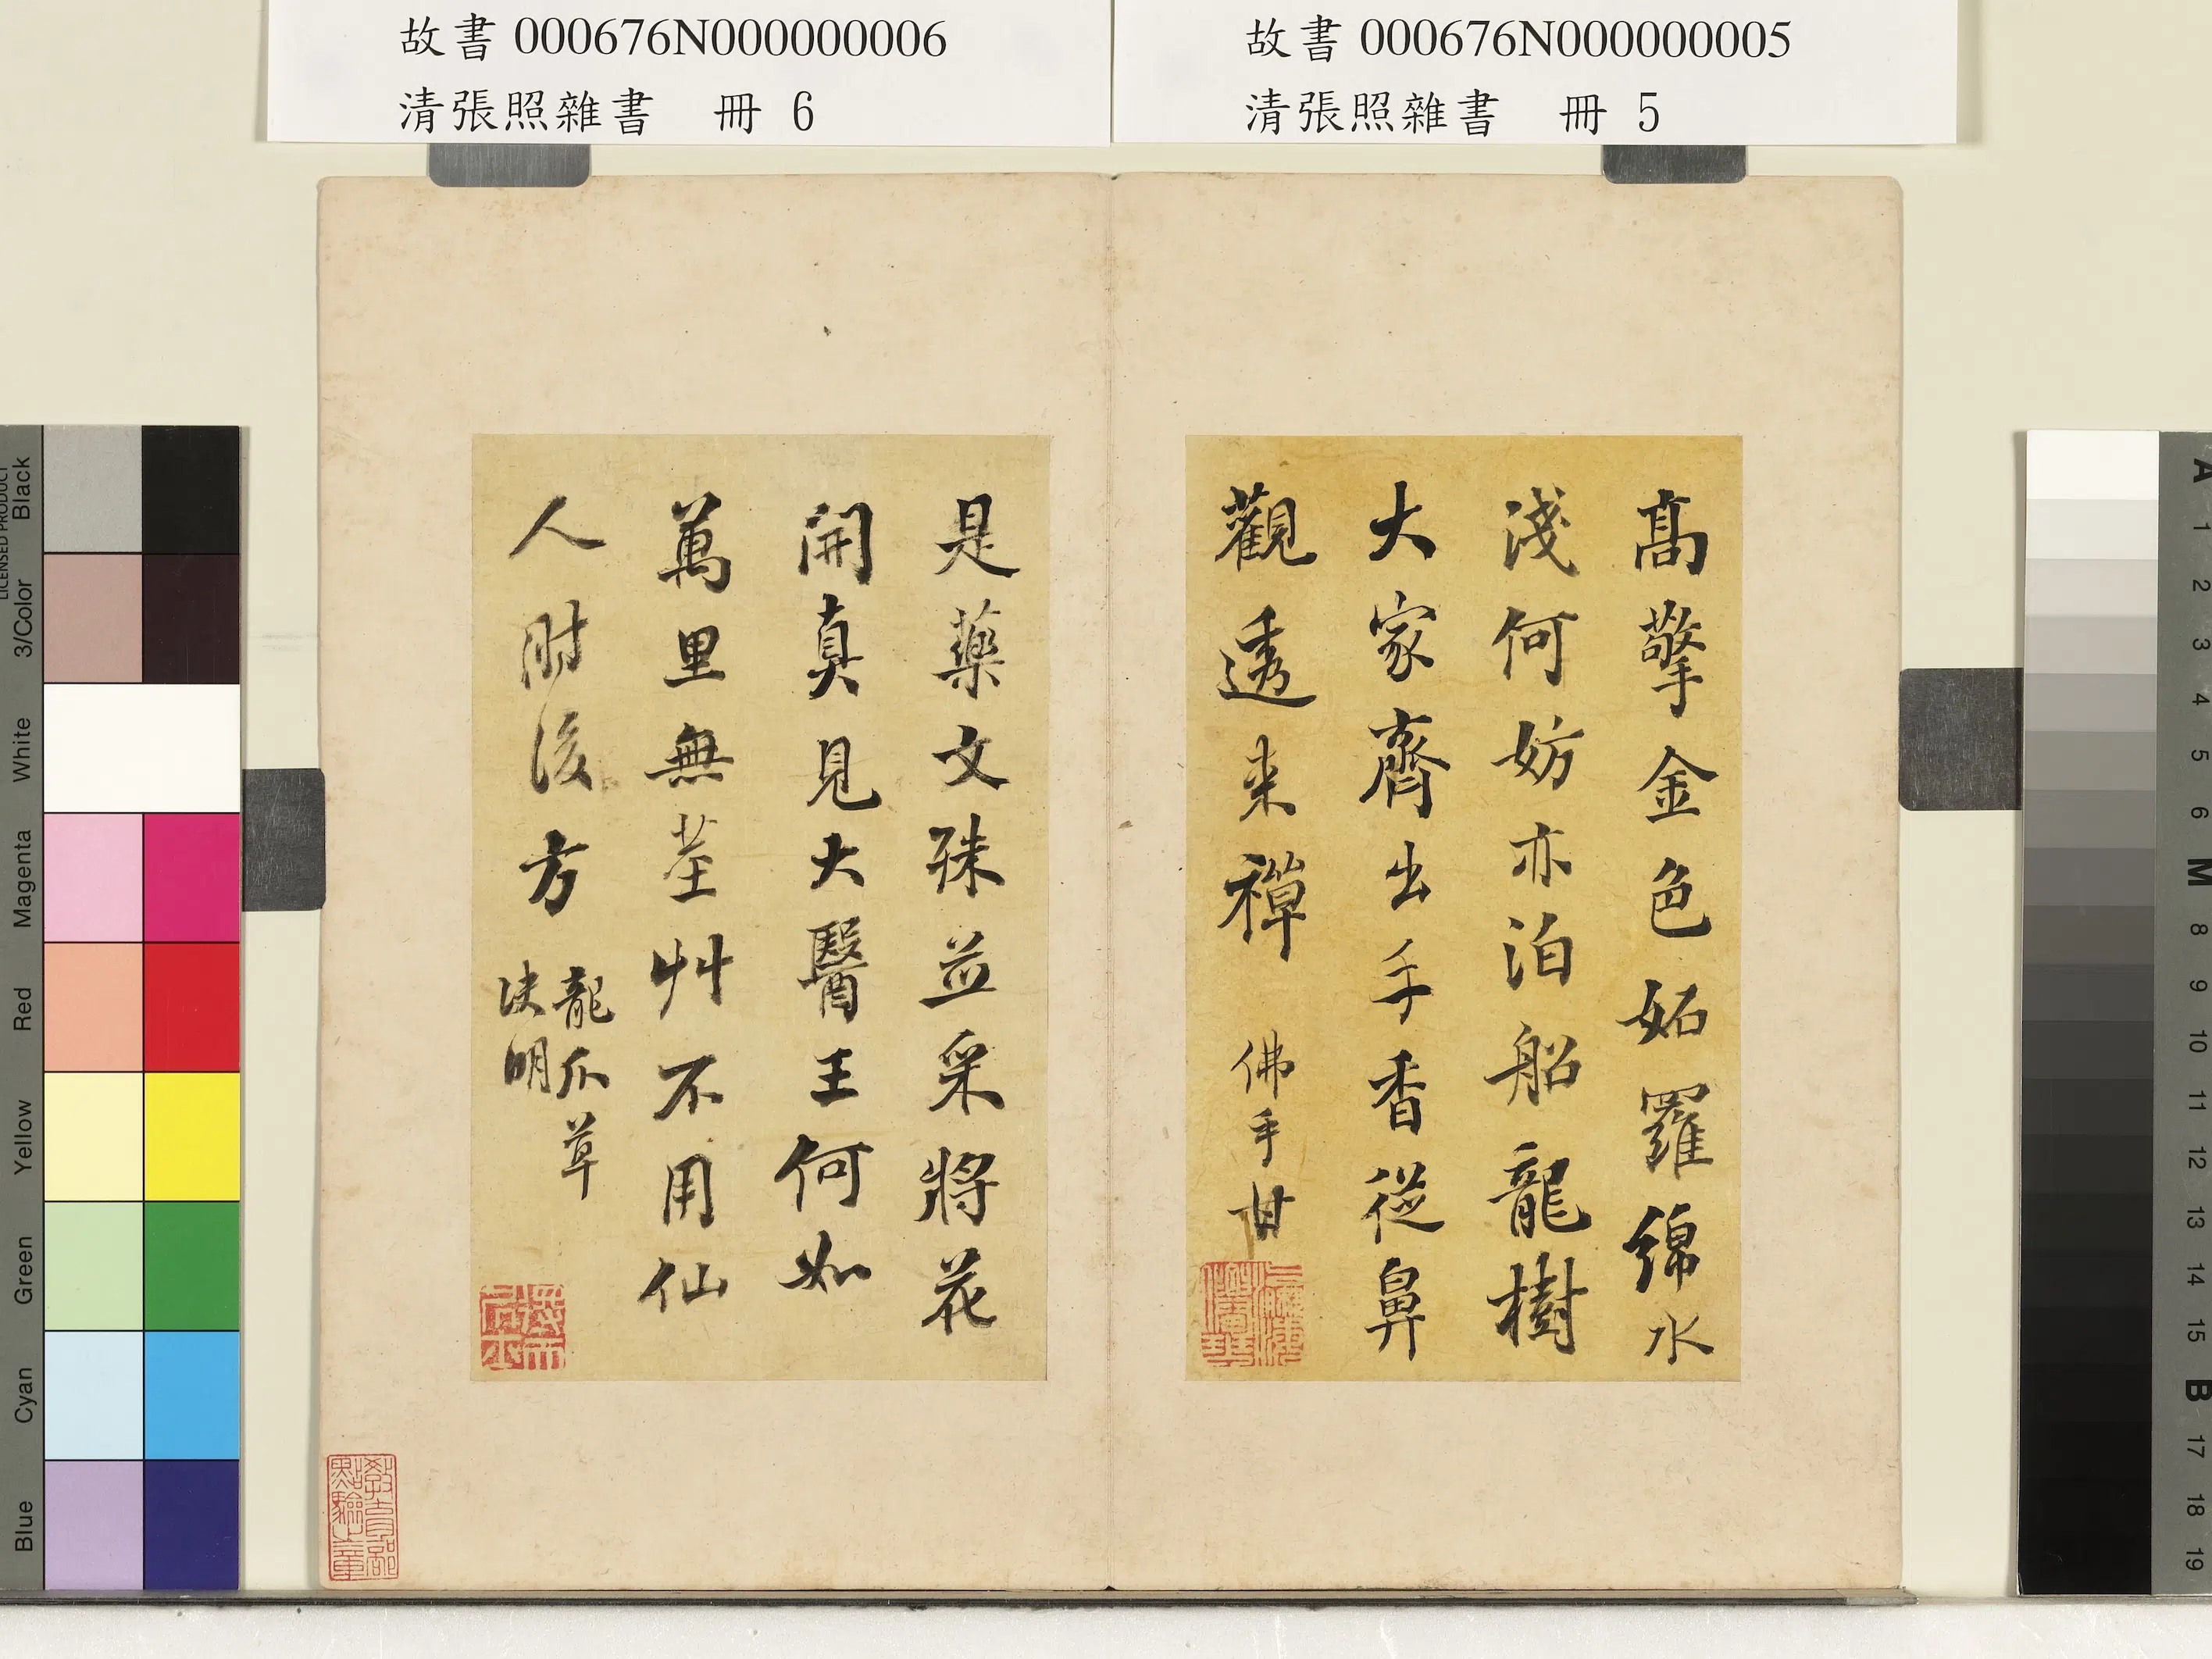 故書 000676N000000005
清張照雜書　冊 5
高擎金色妬羅綿水
淺何妨亦泊船龍樹
大家齊出手香從鼻
觀透来禪 佛手甘
故書 000676N000000006
清張照雜書　冊 6
是藥文殊並采將花
開真見大醫王何如
萬里無荃艸不用仙
人肘後方 龍爪草
决明
教育部
點驗之章
LICENSED PRODUCT
Black
3/Color
White
Magenta
Red
Yellow
Green
Cyan
Blue
A
1
2
3
4
5
6
M
8
9
10
11
12
13
14
15
B
17
18
19